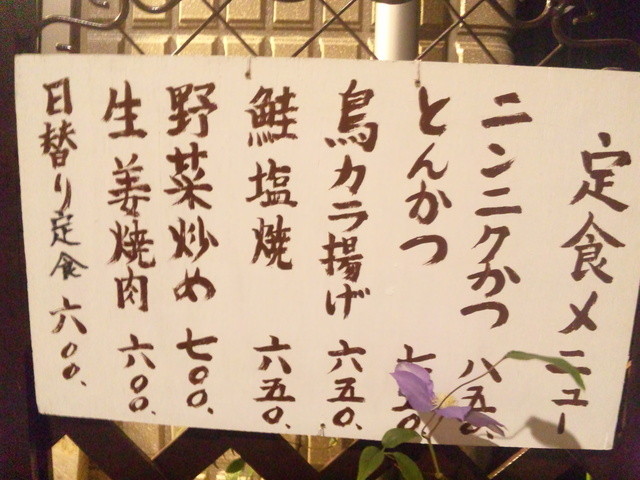 定食メニュー
ニンニクかつ 八五〇.
とんかつ 七五〇
鳥カラ揚げ 六五〇.
鮭塩焼 六五〇.
野菜炒め 七〇〇.
生姜焼肉 六〇〇.
日替り定食 六〇〇.